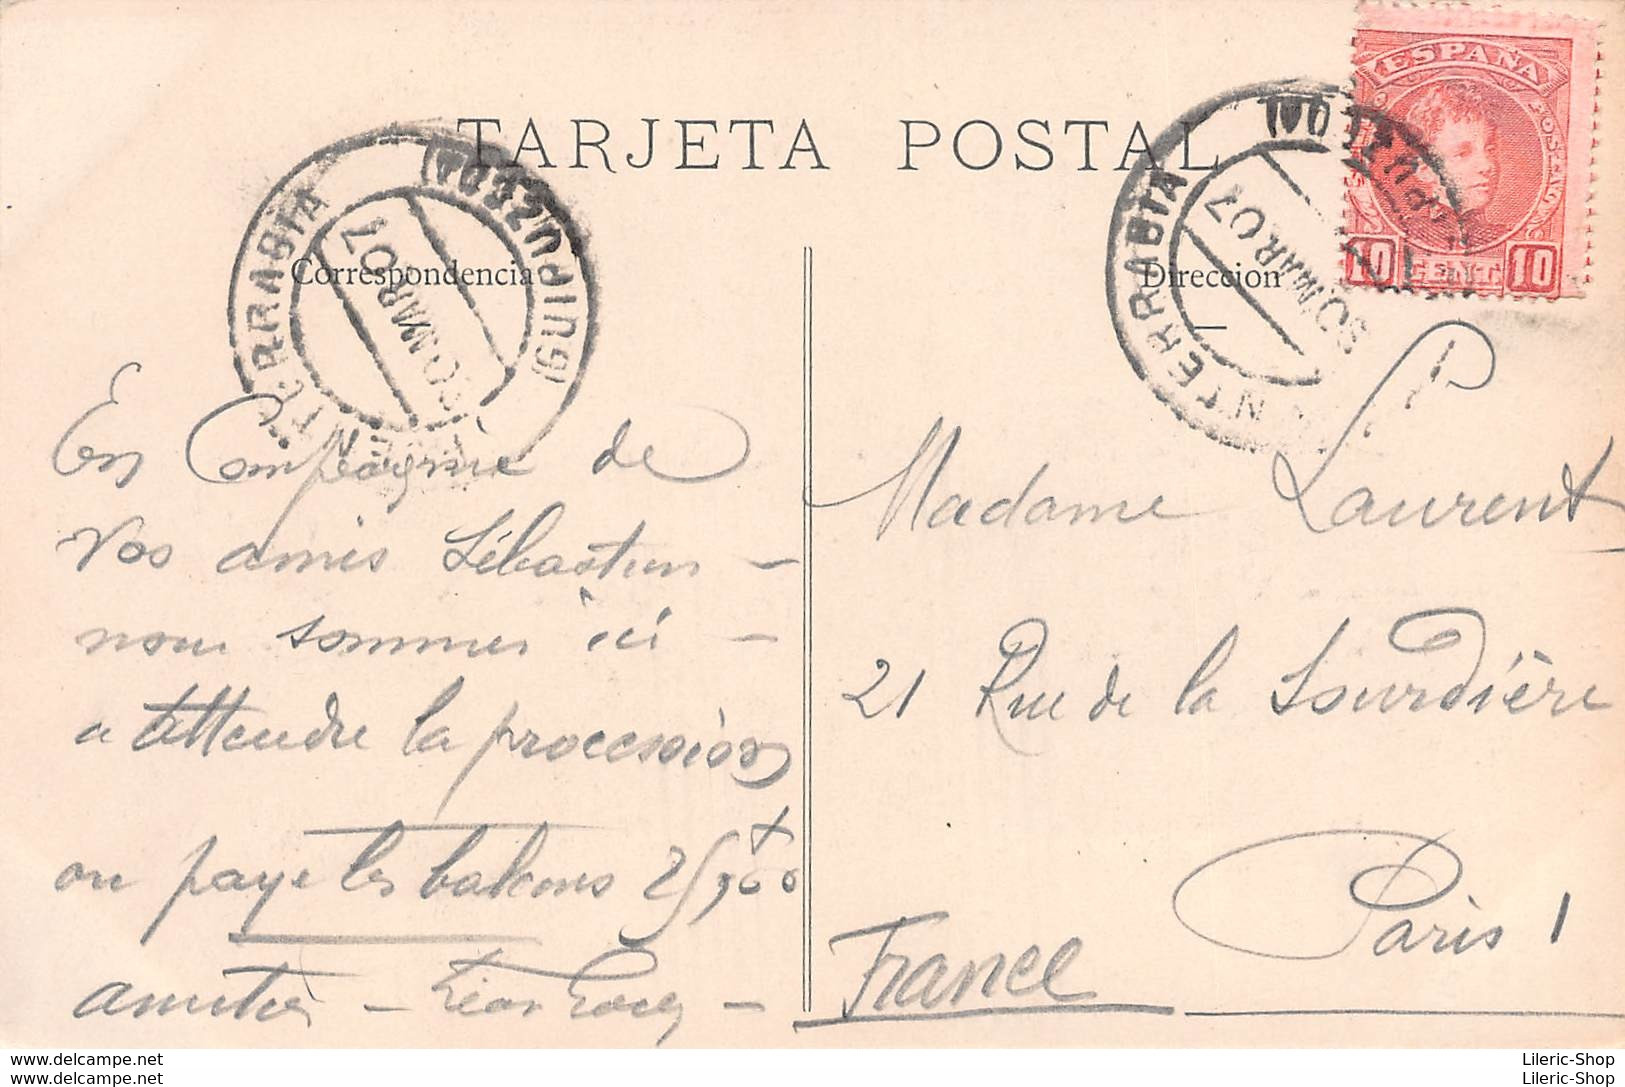 TARJETA POSTAL
ESPAÑA
10 CENT. 10
Correspondencia
Direccion
FUENTERRABIA
(GUIPUZCOA)
30.MAR 07
FUENTERRABIA
(GUIPUZCOA)
30.MAR 07
En Compagnie de
vos amis Sébastien –
nous sommes ici –
a attendre la procession
on paye les balcons
amitiés – Léon
Madame Laurent
21 Rue de la Sourdière
Paris 1
France
Lileric-Shop
Lileric-Shop
https://www.delcampe.net
https://www.delcampe.net